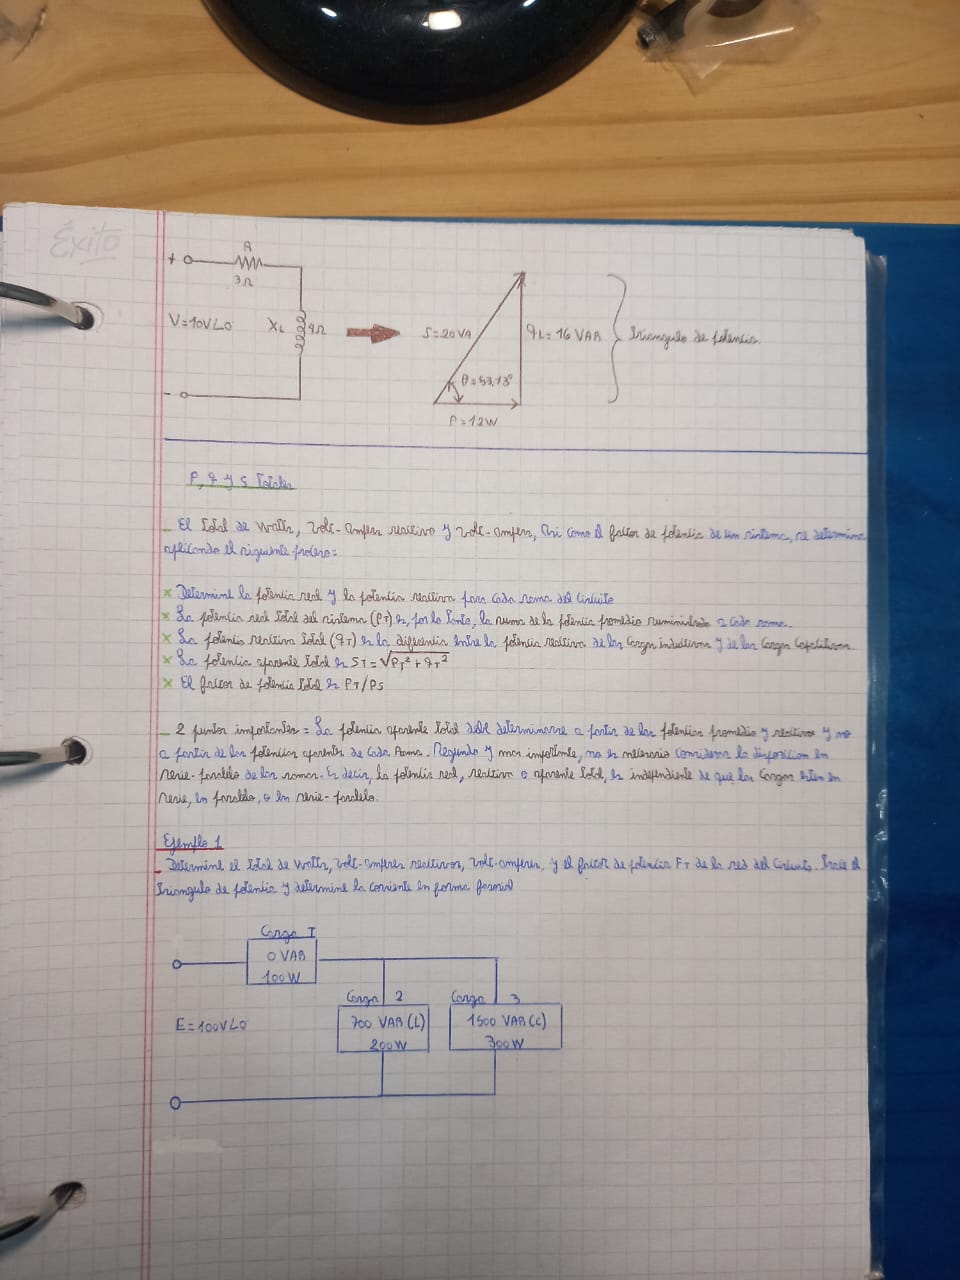 Éxito
R
+
3Ω
V=10V∠0 XL 4Ω S=20VA qL=16 VAR Triangulo de potencia.
θ=53,13°
-
P=12W
P, q y S Totales
_ El total de Watts, Volt-amper reactivo y volt-amper, Asi como el factor de potencia de un sistema, se determina
aplicando el siguiente proceso:
x Determine la potencia real y la potencia reactiva para cada rama del circuito
x La potencia real total del sistema (PT) es, por lo tanto, la suma de la potencia promedio suministrada a cada rama.
x La potencia reactiva total (qT) es la diferencia entre la potencia reactiva de las Cargas inductivas y de las Cargas Capacitivas.
x La potencia aparente total es ST=√PT²+qT²
x El factor de potencia total es PT/PS
_ 2 puntos importantes = La potencia aparente total debe determinarse a partir de las potencias promedio y reactivo y no
a partir de las potencias aparentes de cada Rama. Segundo y mas importante, no es necesario considerar la disposicion en
serie-paralelo de las ramas. Es decir, la potencia real, reactiva o aparente total, es independiente de que las Cargas esten en
serie, en paralelo, o en serie-paralelo.
Ejemplo 1
_ Determine el total de Watts, volt-amperes reactivos, volt-amperes, y el factor de potencia FT de la red del Circuito. Trace el
triangulo de potencia y determine la corriente en forma fasorial
Carga I
0 VAR
100W
Carga 2 Carga 3
E=100V∠0 700 VAR (L) 1500 VAR (C)
200W 300W